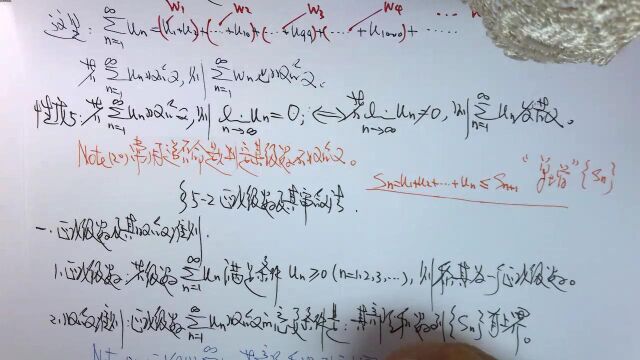 W₁ W₂ W₃ W₄
注: ∑_{n=1}^{∞} uₙ = (u₁+u₂)+(⋯+u₁₀)+(⋯+u₉₉)+(⋯+u₁₀₀₀)+⋯⋯
若∑_{n=1}^{∞} uₙ收敛, 则∑_{n=1}^{∞} wₙ也收敛。
性质5: 若∑_{n=1}^{∞} uₙ收敛, 则 lim_{n→∞} uₙ=0; ⟺ 若 lim_{n→∞} uₙ≠0, 则∑_{n=1}^{∞} uₙ必发散。
Sₙ=u₁+u₂+⋯+uₙ≤Sₙ₊₁ {Sₙ}
§5-2 正项级数及其审敛法.
一. 正项级数及其收敛准则.
1. 正项级数: 若级数∑_{n=1}^{∞} uₙ满足条件 uₙ≥0 (n=1,2,3,⋯), 则称其为正项级数。
2. 收敛准则: 正项级数∑_{n=1}^{∞} uₙ收敛的充要条件是: 其部分和数列{Sₙ}有上界。